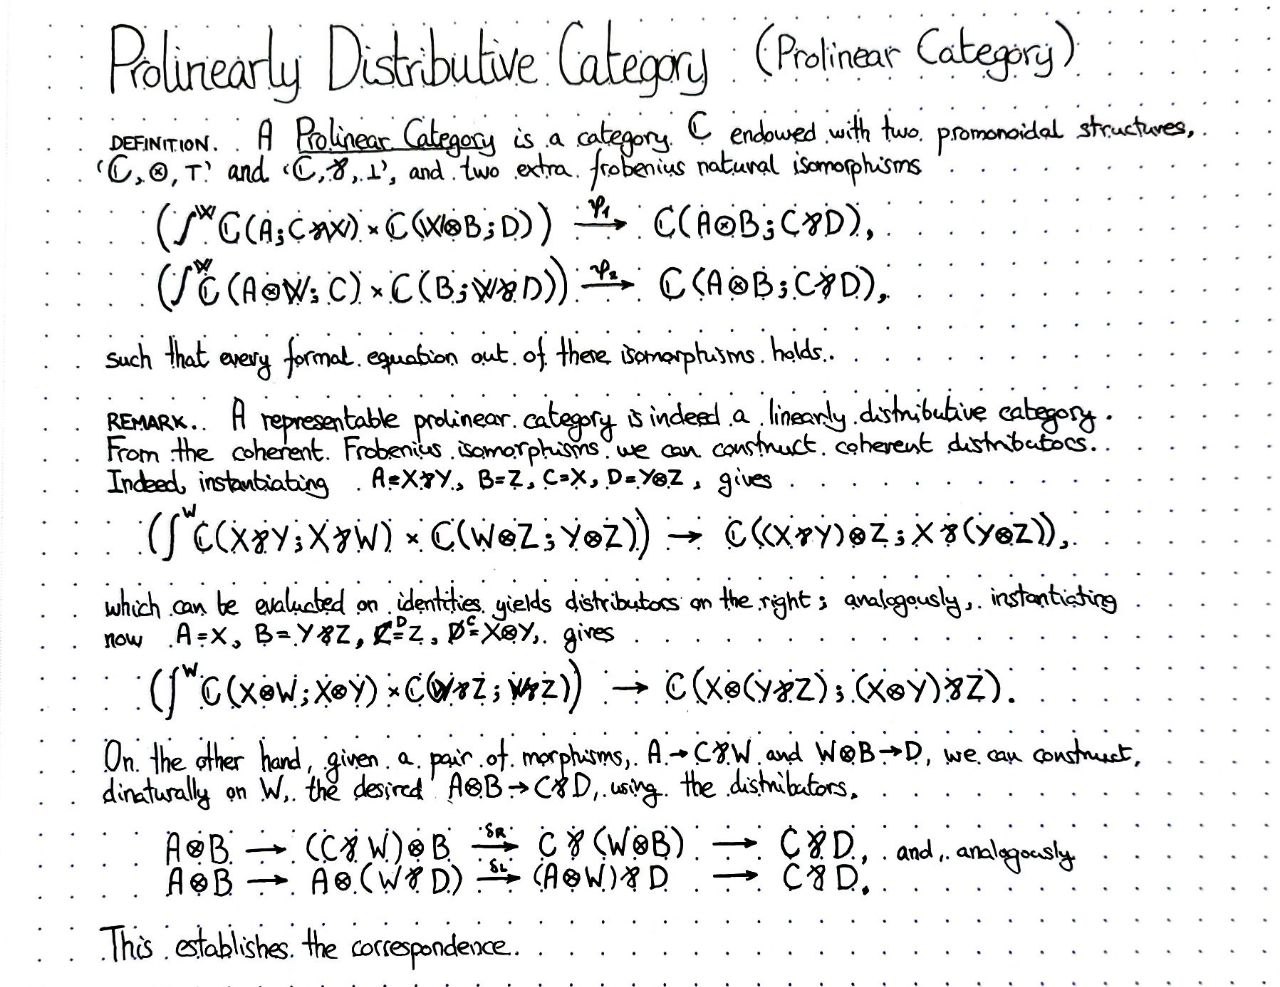 Prolinearly Distributive Category (Prolinear Category)
DEFINITION. A Prolinear Category is a category ℂ endowed with two promonoidal structures,
'(ℂ,⊗,⊤)' and '(ℂ,⅋,⊥)', and two extra frobenius natural isomorphisms
(∫^W ℂ(A;C⅋W) × ℂ(W⊗B;D)) —φ₁→ ℂ(A⊗B;C⅋D),
(∫^W ℂ(A⊗W;C) × ℂ(B;W⅋D)) —φ₂→ ℂ(A⊗B;C⅋D),
such that every formal equation out of these isomorphisms holds.
REMARK. A representable prolinear category is indeed a linearly distributive category.
From the coherent Frobenius isomorphisms we can construct coherent distributors.
Indeed, instantiating A=X⅋Y, B=Z, C=X, D=Y⊗Z, gives
(∫^W ℂ(X⅋Y;X⅋W) × ℂ(W⊗Z;Y⊗Z)) → ℂ((X⅋Y)⊗Z;X⅋(Y⊗Z)),
which can be evaluated on identities yields distributors on the right; analogously, instantiating
now A=X, B=Y⅋Z, D=Z, C=X⊗Y, gives
(∫^W ℂ(X⊗W;X⊗Y) × ℂ(Y⅋Z;W⅋Z)) → ℂ(X⊗(Y⅋Z);(X⊗Y)⅋Z).
On the other hand, given a pair of morphisms, A→C⅋W and W⊗B→D, we can construct,
dinaturally on W, the desired A⊗B→C⅋D, using the distributors.
A⊗B → (C⅋W)⊗B —δR→ C⅋(W⊗B) → C⅋D, and, analogously
A⊗B → A⊗(W⅋D) —δL→ (A⊗W)⅋D → C⅋D.
This establishes the correspondence.